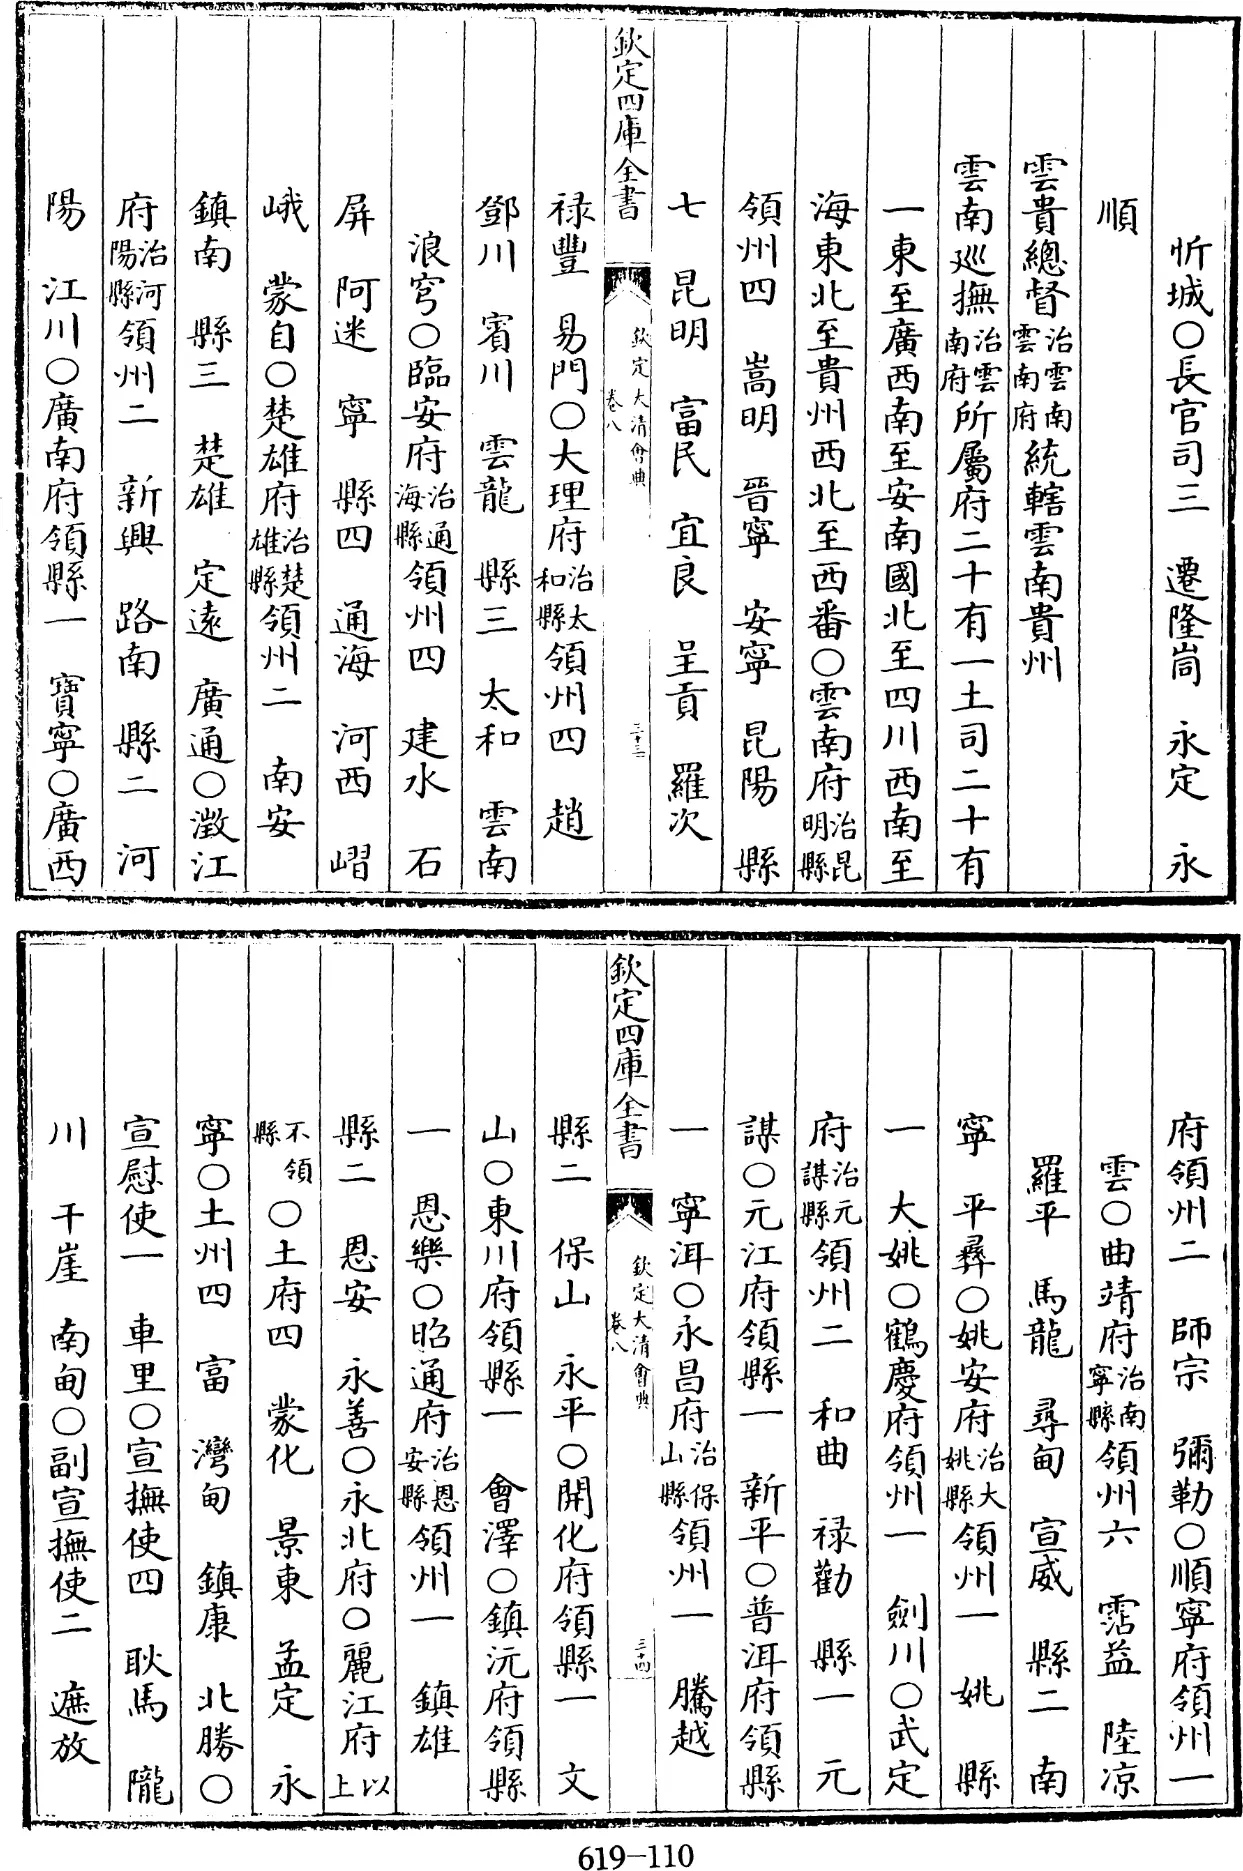 忻城○長官司三　遷隆峝　永定　永
順
雲貴總督治雲南雲南府統轄雲南貴州
雲南巡撫治雲南府所屬府二十有一土司二十有
一東至廣西南至安南國北至四川西南至
海東北至貴州西北至西番○雲南府治昆明縣
領州四　嵩明　晉寧　安寧　昆陽　縣
七　昆明　富民　宜良　呈貢　羅次
欽定四庫全書　欽定大清會典卷八　三十三
祿豐　易門○大理府治太和縣領州四　趙
鄧川　賓川　雲龍　縣三　太和　雲南
浪穹○臨安府治通海縣領州四　建水　石
屏　阿迷　寧　縣四　通海　河西　嶍
峨　蒙自○楚雄府治楚雄縣領州二　南安
鎮南　縣三　楚雄　定遠　廣通○澂江
府治河陽縣領州二　新興　路南　縣二　河
陽　江川○廣南府領縣一　寶寧○廣西
府領州二　師宗　彌勒○順寧府領州一
雲○曲靖府治南寧縣領州六　霑益　陸凉
羅平　馬龍　尋甸　宣威　縣二　南
寧　平彝○姚安府治大姚縣領州一　姚　縣
一　大姚○鶴慶府領州一　劍川○武定
府治元謀縣領州二　和曲　禄勸　縣一　元
謀○元江府領縣一　新平○普洱府領縣
一　寧洱○永昌府治保山縣領州一　騰越
欽定四庫全書　欽定大清會典卷八　三十四
縣二　保山　永平○開化府領縣一　文
山○東川府領縣一　會澤○鎮沅府領縣
一　恩樂○昭通府治恩安縣領州一　鎮雄
縣二　恩安　永善○永北府○麗江府以上
不領縣○土府四　蒙化　景東　孟定　永
寧○土州四　富　灣甸　鎮康　北勝○
宣慰使一　車里○宣撫使四　耿馬　隴
川　干崖　南甸○副宣撫使二　遮放
619-110